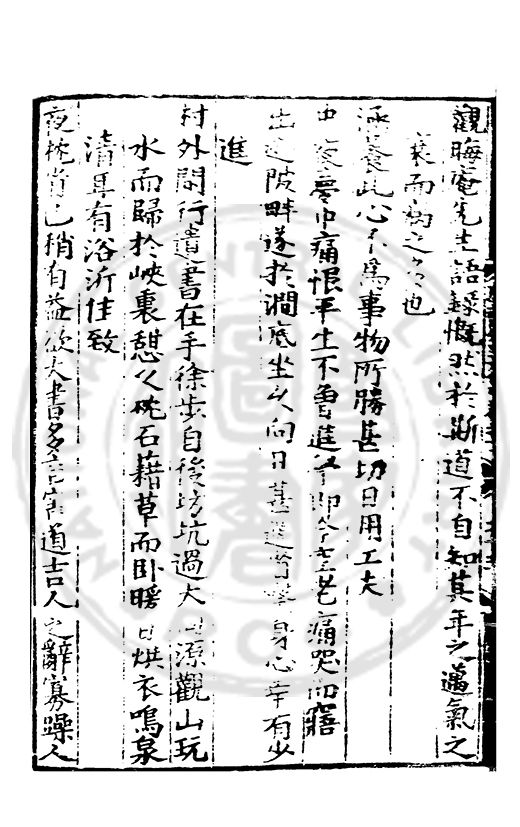 觀晦庵先生語錄慨然於斯道不自知其年之邁氣之
衰而病之多也
涵養此心不為事物所勝甚切日用工夫
中夜夢中痛恨平生不曾進學即今老痛哭而寤
出近陂畔遂於澗底坐久向日甚進學身心幸有少
進
村外閒行遺書在手徐步自後坊坑過大源觀山玩
水而歸於峽裏憩久枕石藉草而臥暖日烘衣鳴泉
清耳有浴沂佳致
夜枕省己稍有益欲大書多言害道吉人之辭寡躁人